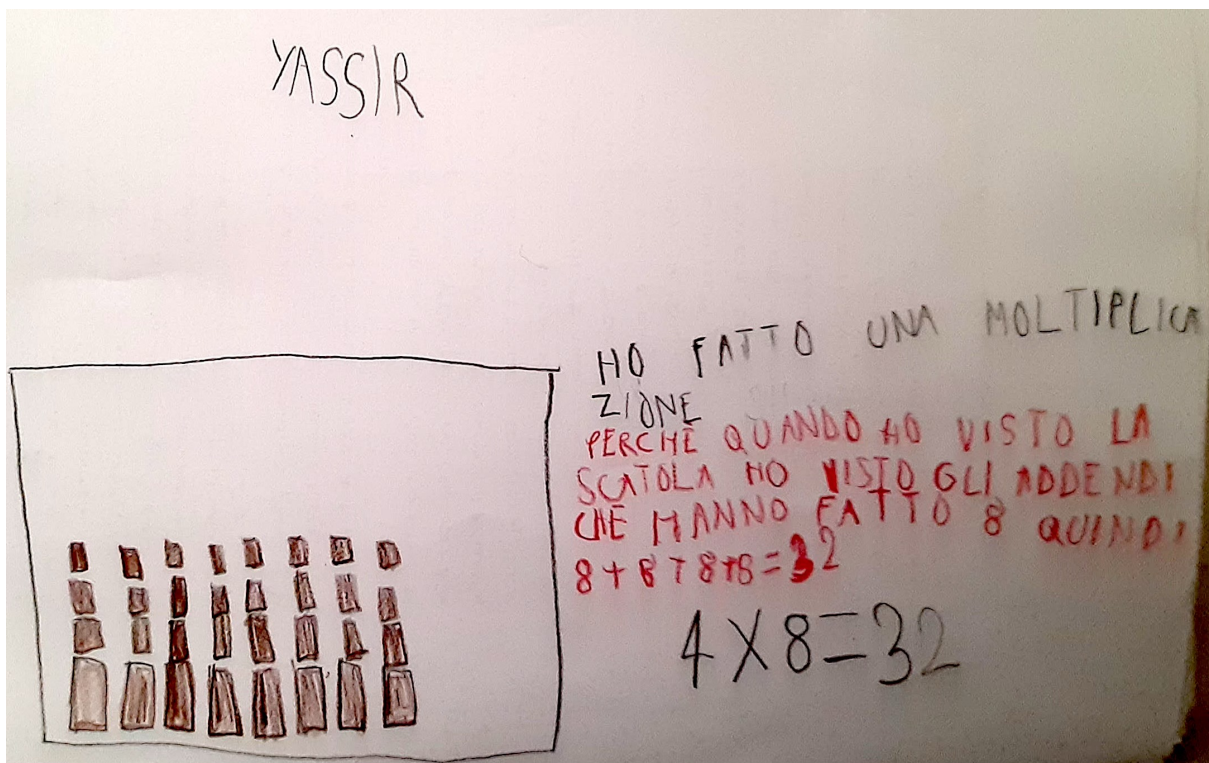 YASSIR
HO FATTO UNA MOLTIPLICA
ZIONE
PERCHÈ QUANDO HO VISTO LA
SCATOLA HO VISTO GLI ADDENDI
CHE HANNO FATTO 8 QUINDI
8+8+8+8=32
4X8=32